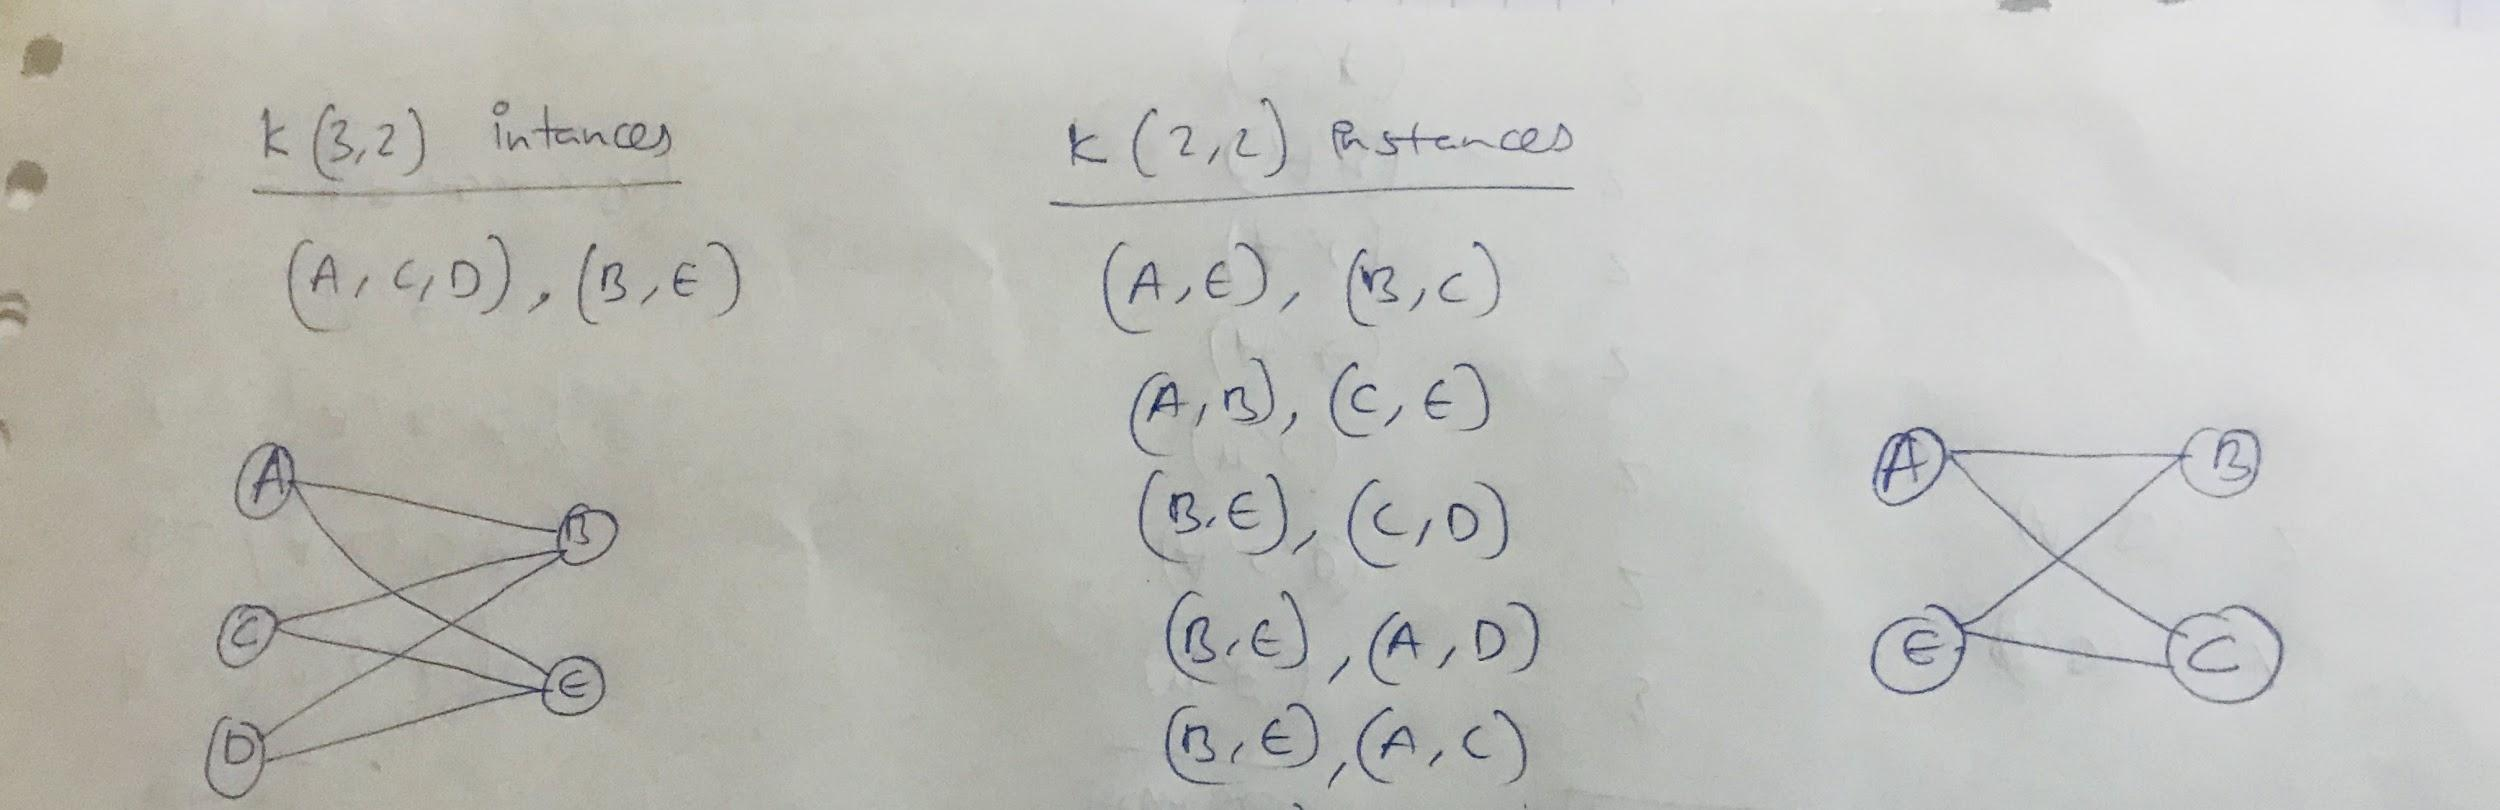 K (3,2) intances
(A, C, D), (B, E)
A
B
C
E
D
K (2,2) instances
(A, E), (B, C)
(A, B), (C, E)
(B, E), (C, D)
(B, E), (A, D)
(B, E), (A, C)
A
B
E
C